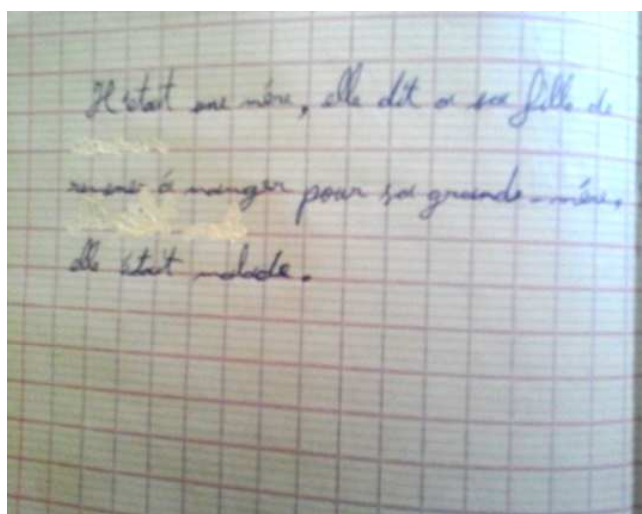 Il était une mère, elle dit a sa fille de
à manger pour sa grande-mère,
elle était malade.